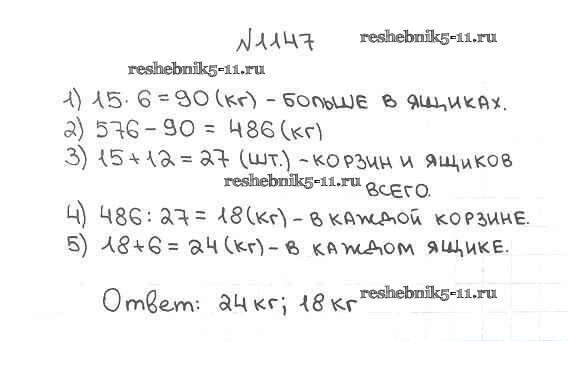 №1147 reshebnik5-11.ru
reshebnik5-11.ru
1) 15·6=90(кг) - больше в ящиках.
2) 576-90 = 486(кг)
3) 15+12=27 (шт.) - корзин и ящиков
reshebnik5-11.ru
всего.
4) 486:27=18(кг) - в каждой корзине.
5) 18+6=24(кг) - в каждом ящике.
Ответ: 24кг; 18кг reshebnik5-11.ru